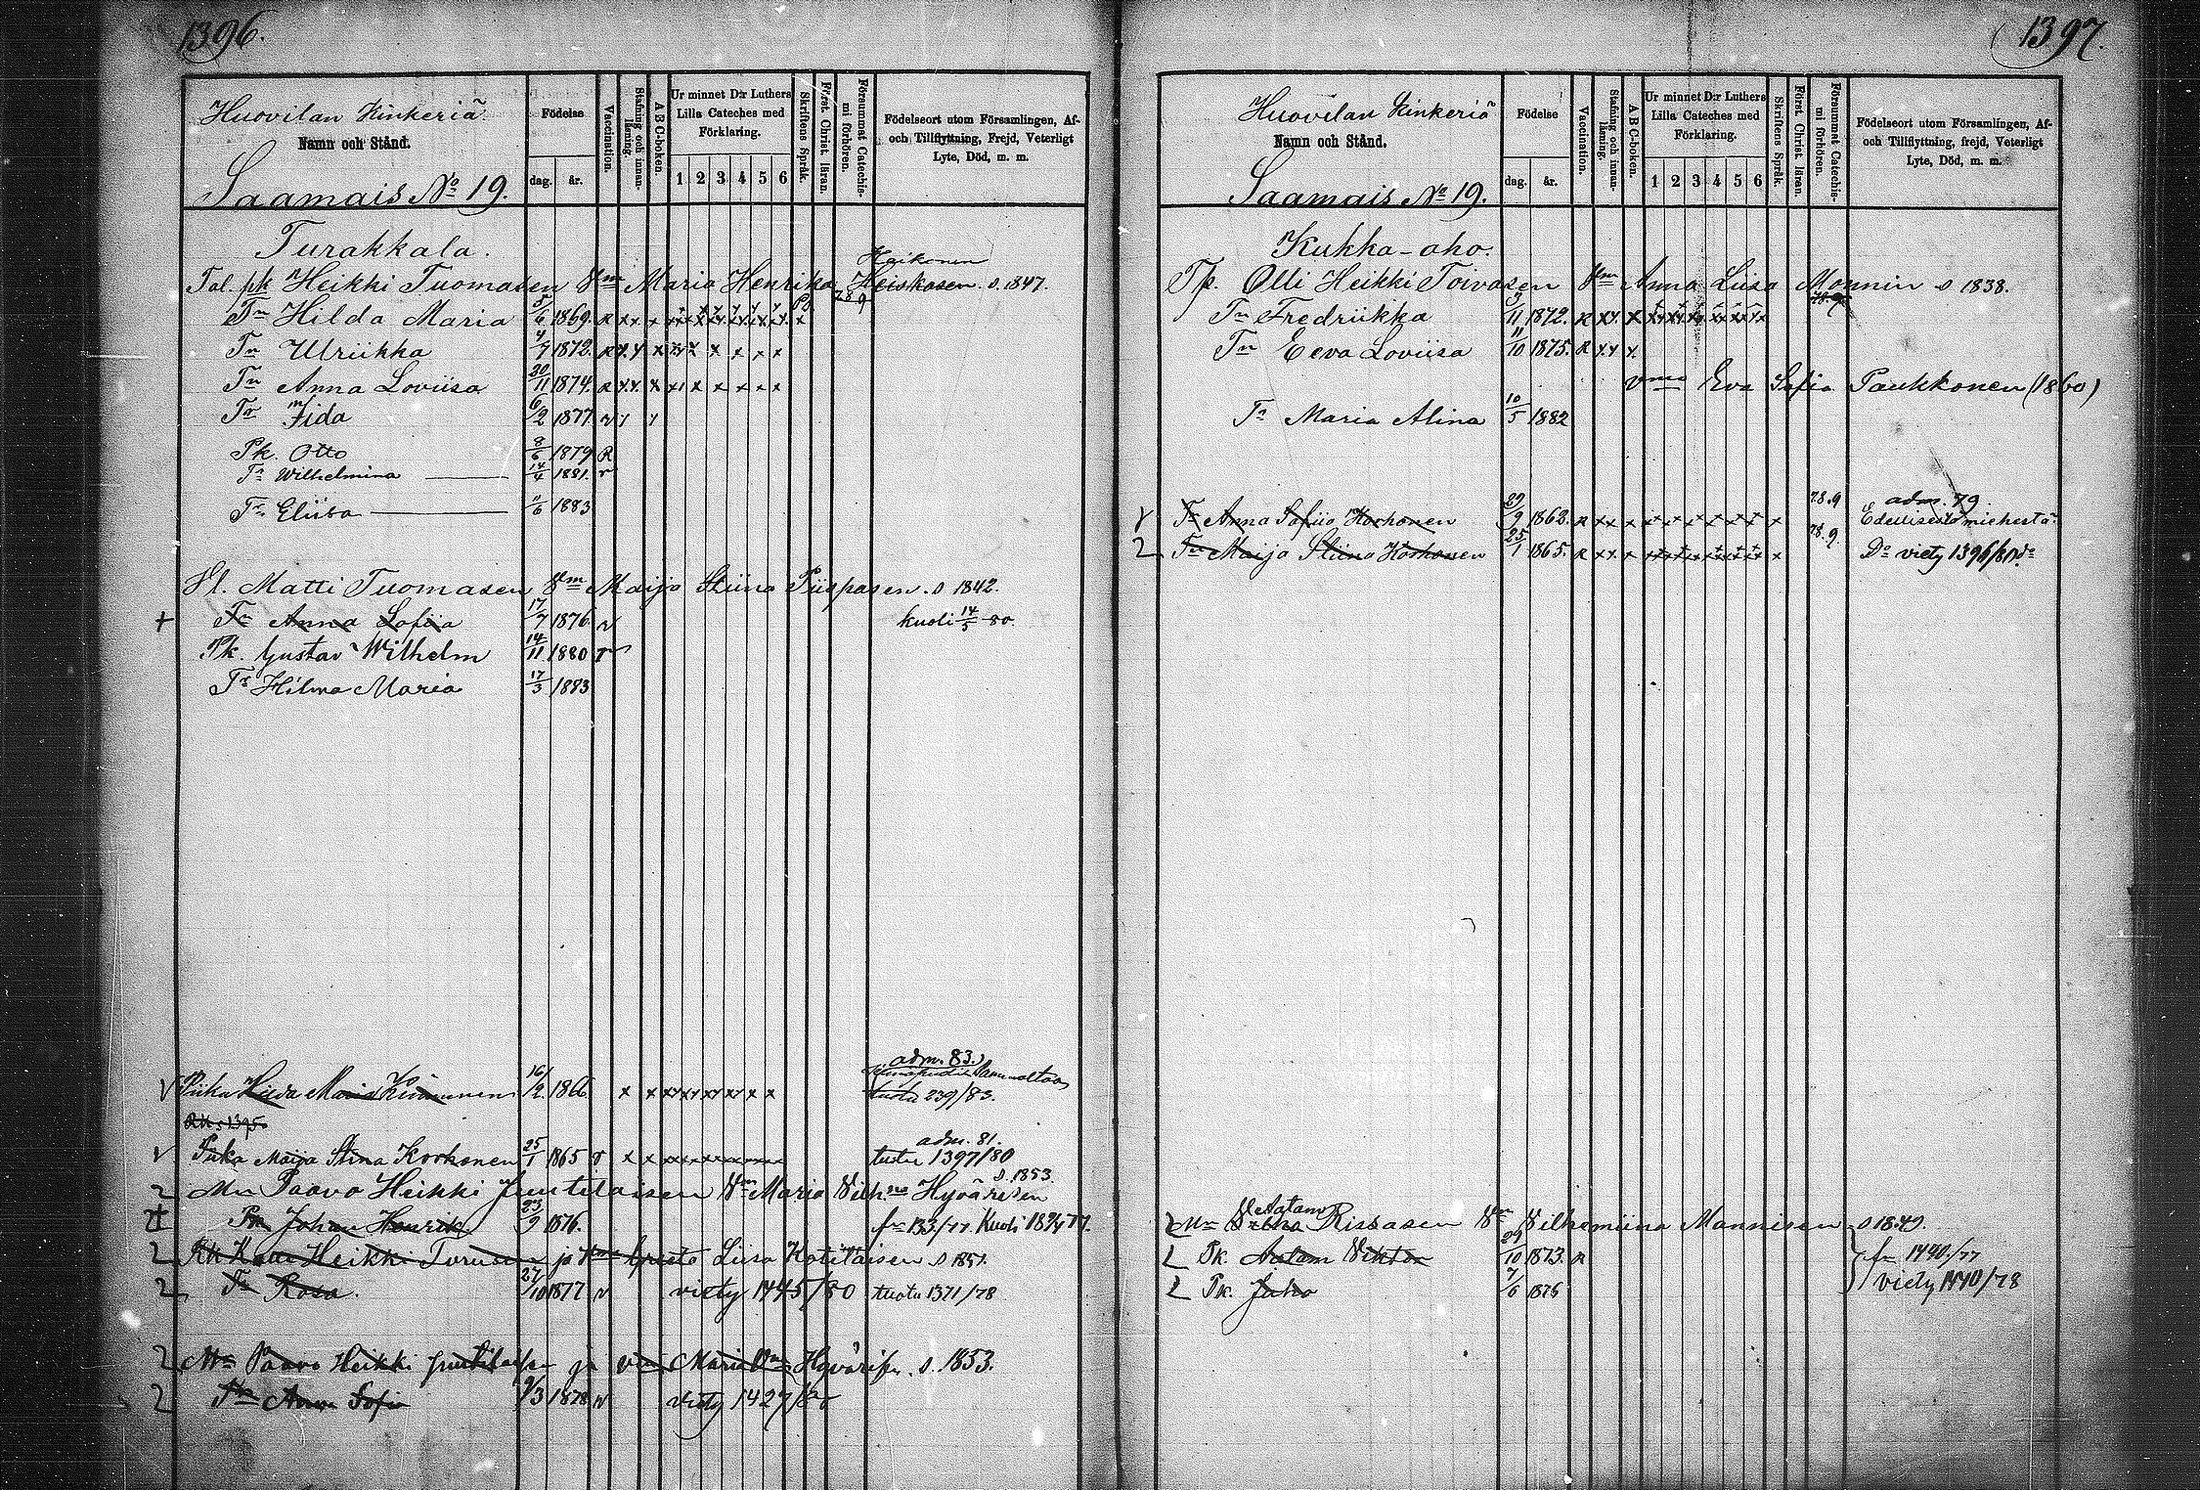 1396.
Huovilan Kinkeriä
Namn och Stånd.
Saamais No 19.
Födelse
dag. år.
Vaccination.
Stafning och innanläsning.
A B C-boken.
Ur minnet D:r Luthers Lilla Cateches med Förklaring.
1 2 3 4 5 6
Skriftens Språk.
Först. Christ. läran.
Försummat Catechismi förhören.
Födelseort utom Församlingen, Af- och Tillflyttning, Frejd, Veterligt Lyte, Död, m. m.
Turakkala.
Haikonen
Tal. pk Heikki Tuomasen Vm Maria Henrika Heiskasen s. 1847.
Tr Hilda Maria 5/6 1869. R
Tr Ulriikka 4/7 1872. R
Tr Anna Loviisa 30/11 1874. R
Tr Fida 6/2 1877.
Pk. Otto 8/6 1879 R
Tr Wilhelmina 14/4 1881. r
Tr Eliisa 11/6 1883
Hl. Matti Tuomasen Vm Maija Stiina Piispasen. s 1842.
+ Tr Anna Sofiia 17/7 1876 kuoli 14/5 80.
Pk. Gustav Wilhelm 14/11 1880 r
Tr Hilma Maria 17/3 1883
adm. 83.
Piika Hilda Maria Kinnunen 16/2 1866 tuotu 239/83.
adm. 81.
Piika Maija Stina Korhonen 25/1 1865 r tuotu 1397/80
s. 1853.
Mn Paavo Heikki Juutilaisen Vm Maria Wilh:na Hyvärisen
Pk Johan Henrik 23/9 1876. fr 133/77. Kuoli
Heikki Turusen ja Liisa Kotilaisen s 1851.
Tr Rosa. 27/10 1877 viety 1445/80 tuotu 1371/78
Mn Paavo Heikki Juutilaisen ja vm Maria Hyvärisen. s. 1853.
Tr Anna Sofia 9/3 1878 viety 1427/80
1397.
Huovilan Kinkeriä
Namn och Stånd.
Saamais No 19.
Födelse
dag. år.
Vaccination.
Stafning och innanläsning.
A B C-boken.
Ur minnet D:r Luthers Lilla Cateches med Förklaring.
1 2 3 4 5 6
Skriftens Språk.
Först. Christ. läran.
Försummat Catechismi förhören.
Födelseort utom Församlingen, Af- och Tillflyttning, frejd, Veterligt Lyte, Död, m. m.
Kukka-aho.
Tp. Olli Heikki Toivasen Vm Anna Liisa Monnin s 1838.
Tr Fredriikka 3/11 1872. R
Tr Eeva Loviisa 11/10 1875. R
vmo Eva Sofia Paukkonen (1860)
Tr Maria Alina 10/5 1882
78.9 adm. 79.
Tr Anna Sofiia Korhonen 29/9 1862. R Edellisestä miehestä
Tr Maija Stiina Korhonen 25/1 1865. R 78.9. Do viety 1396/80.
Aatam
Mn Rissasen Vm Vilhemiina Mannisen s 1849.
Pk. Aatam Viktor 29/10 1873. R fr 1490/77
Pk. Juho 7/6 1876 viety 1440/78